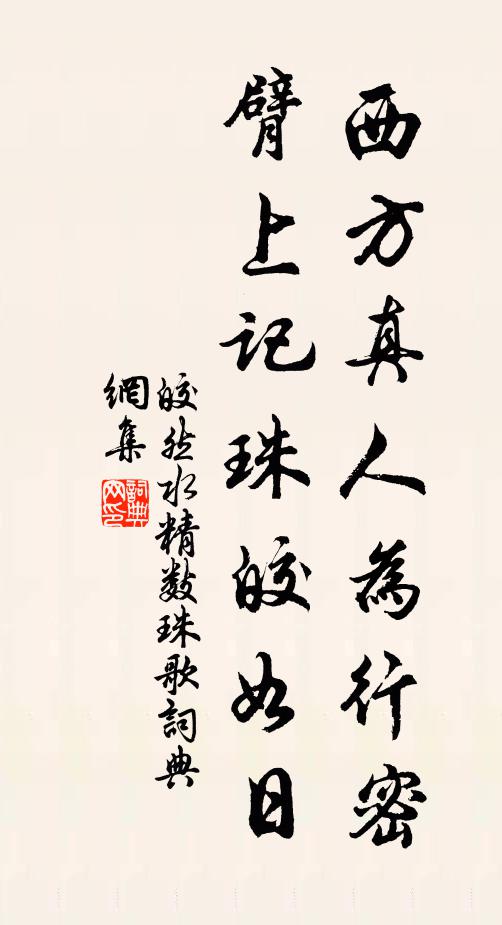 西方真人為行密
臂上記珠皎如日
皎然水精數珠歌詞典
網集
詞典網印